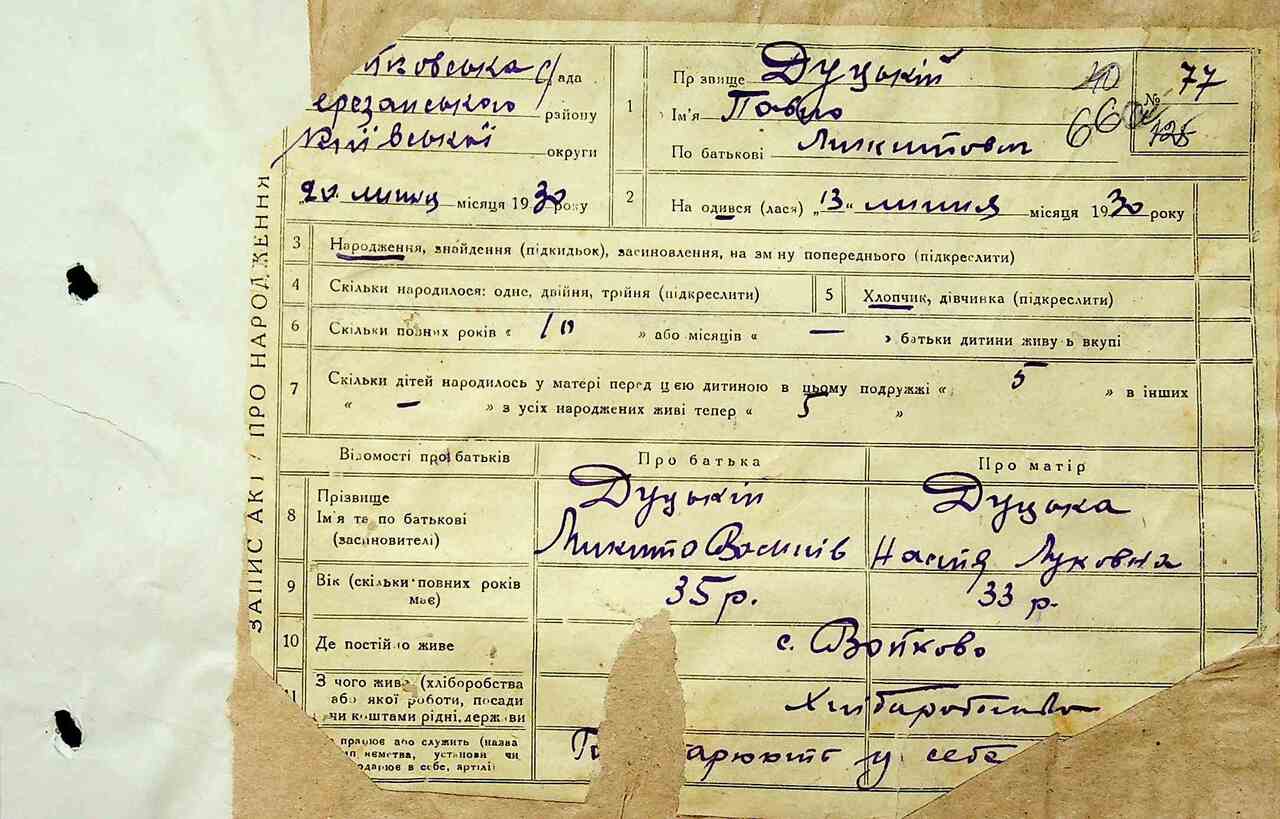 йковська с/рада
ерезанського району
Київської округи
20 липця місяця 1930 року
ЗАПИС АКТ ПРО НАРОДЖЕННЯ
1
Пр звище Дуцький
Ім'я Павло
По батькові Микитович
40
66
№ 77
126
2
На одився (лася) „13“ липня місяця 1930 року
3 Народження, знайдення (підкидьок), засиновлення, на зм ну попереднього (підкреслити)
4 Скільки народилося: одне, двійня, трійня (підкреслити)
5 Хлопчик, дівчинка (підкреслити)
6 Скільки повних років « 10 » або місяців « — » батьки дитини живу ь вкупі
7 Скільки дітей народилось у матері перед цією дитиною в цьому подружжі « 5 » в інших
« — » з усіх народжених живі тепер « 5 »
Відомості про батьків
Про батька
Про матір
8 Прізвище
Ім'я та по батькові
(засиновителі)
Дуцький
Микита Васил[ів
Дуцька
Настя Луковна
9 Вік (скільки повних років
має)
35 р.
33 р.
10 Де постійно живе
с. Войково
11 З чого живе (хліборобства
або якої роботи, посади
чи коштами рідні, держ ви
Хліборобство
працює або служить (назва
п иємства, установи чи
одарює в себе, артілі
Го арюють у себе